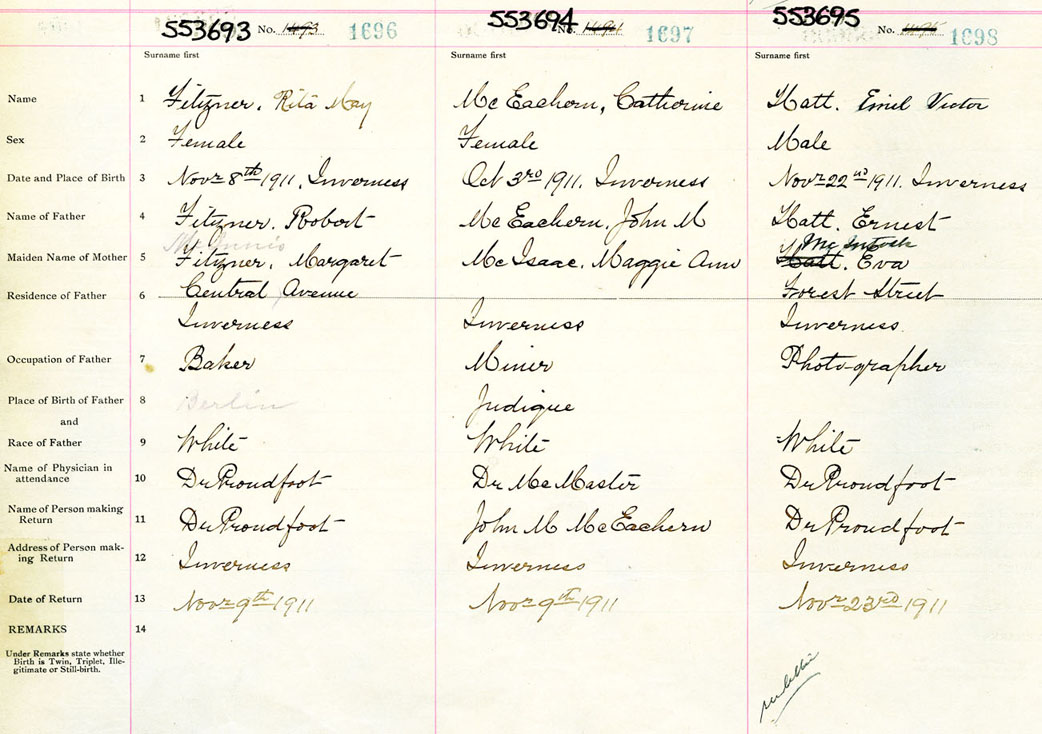 553693 No. 1493 1696
553694 No. 1494 1697
553695 No. 1495 1698
Surname first Surname first Surname first
Name 1 Fitzner, Rita May Mc Eachern, Catherine Hatt. Emil Victor
Sex 2 Female Female Male
Date and Place of Birth 3 Novr 8th 1911, Inverness Oct 3rd 1911. Inverness Novr 22nd 1911. Inverness
Name of Father 4 Fitzner. Robert Mc Eachern, John M Hatt. Ernest
Mc Innis McIntosh
Maiden Name of Mother 5 Fitzner, Margaret Mc Isaac, Maggie Ann Hatt. Eva
Residence of Father 6 Central Avenue Forest Street
Inverness Inverness Inverness.
Occupation of Father 7 Baker Miner Photographer
Place of Birth of Father 8 Berlin Judique
and
Race of Father 9 White White White
Name of Physician in
attendance 10 Dr Proudfoot Dr McMaster Dr Proudfoot
Name of Person making
Return 11 Dr Proudfoot John M McEachern Dr Proudfoot
Address of Person mak-
ing Return 12 Inverness Inverness Inverness
Date of Return 13 Novr 9th 1911 Novr 9th 1911 Novr 23rd 1911
REMARKS 14
Under Remarks state whether
Birth is Twin, Triplet, Ille-
gitimate or Still-birth.